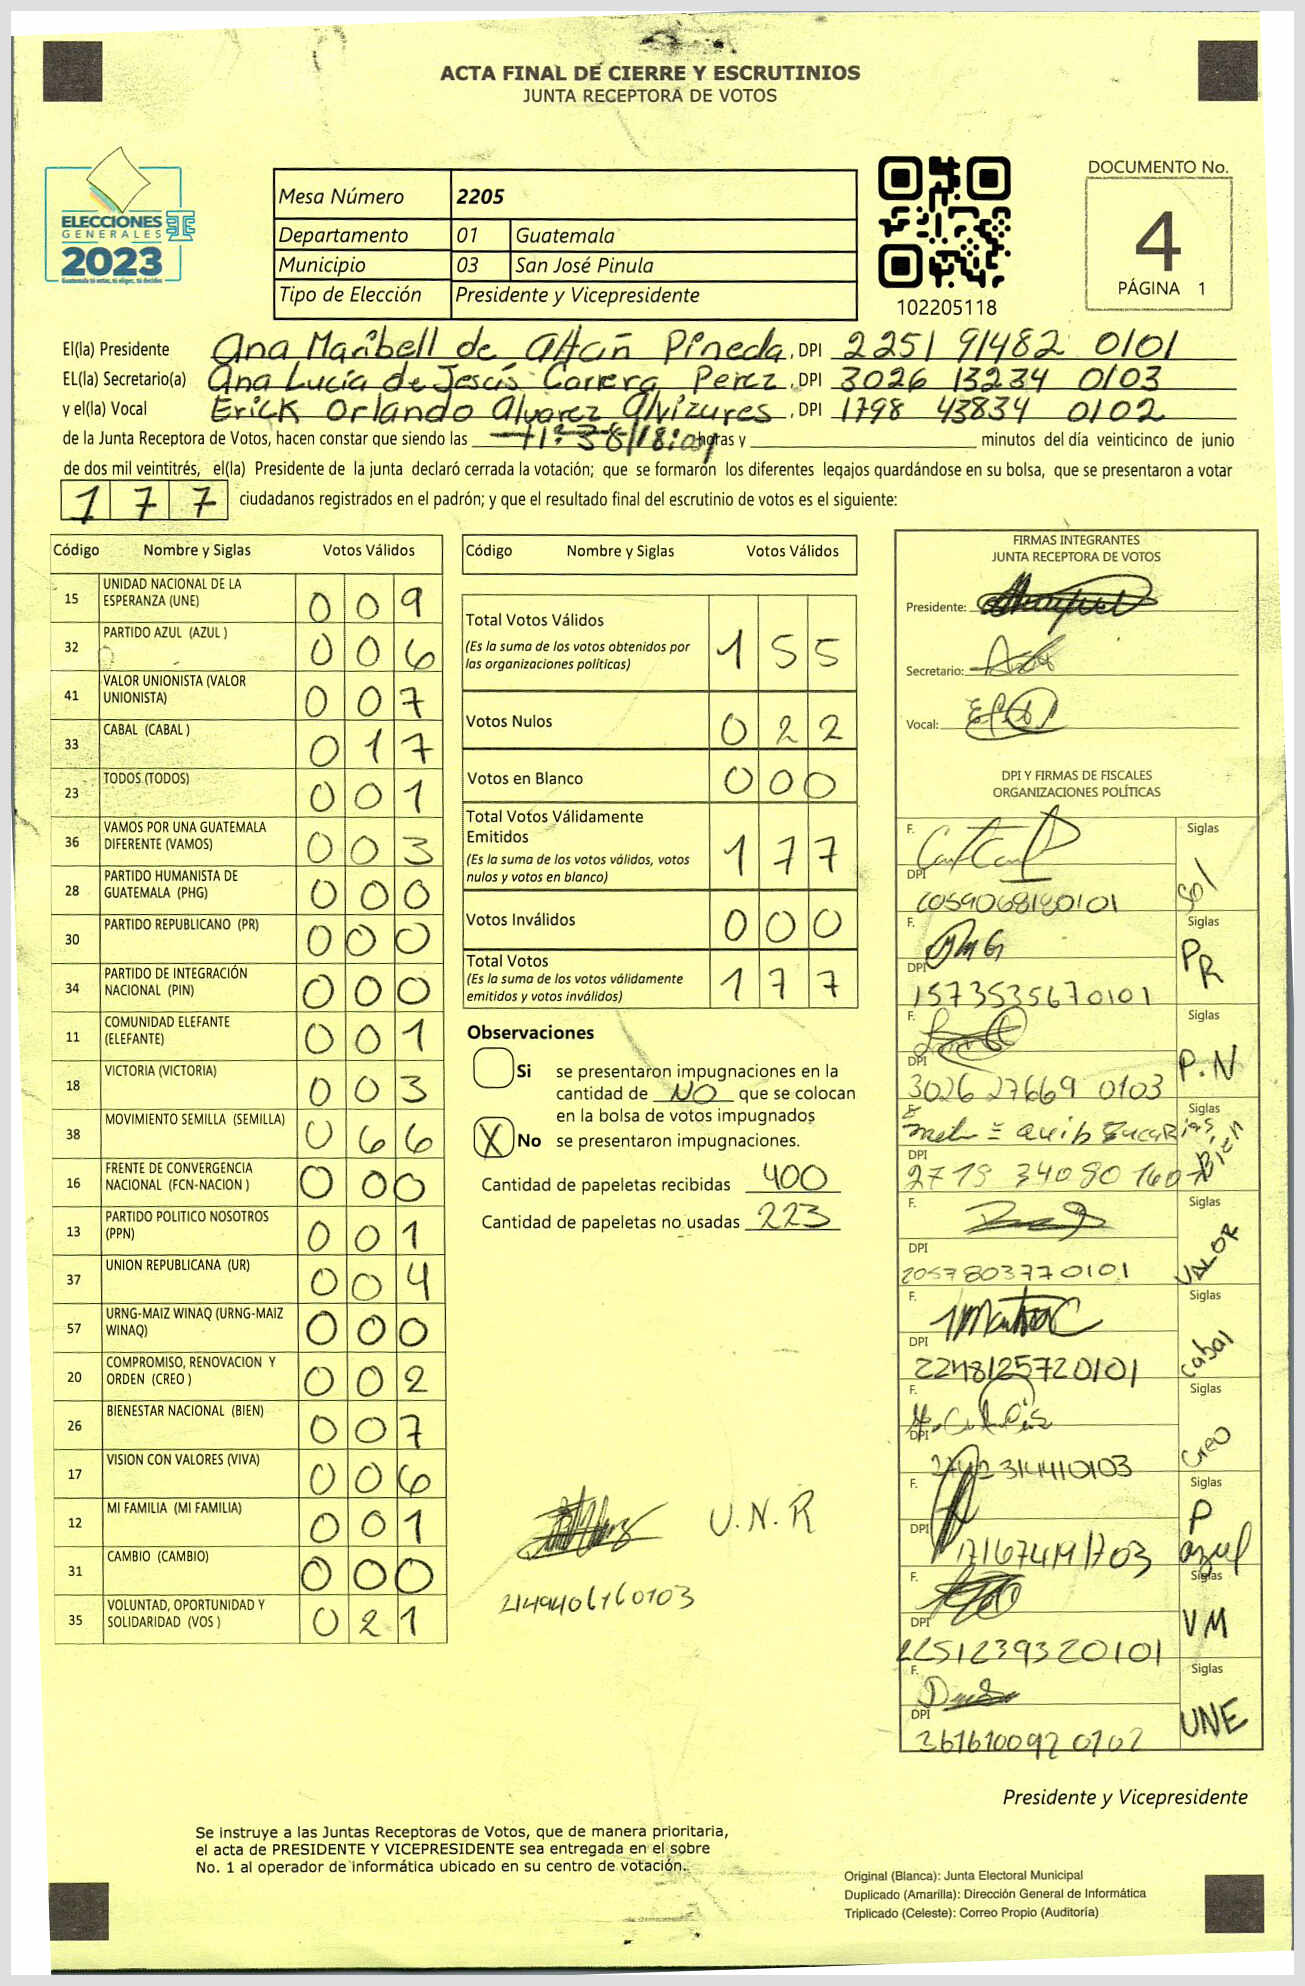 ACTA FINAL DE CIERRE Y ESCRUTINIOS
JUNTA RECEPTORA DE VOTOS
ELECCIONES
GENERALES
2023
Mesa Número 2205
Departamento 01 Guatemala
Municipio 03 San José Pinula
Tipo de Elección Presidente y Vicepresidente
102205118
DOCUMENTO No.
4
PÁGINA 1
El(la) Presidente Ana Maribell de Pineda, DPI 2251 91482 0101
EL(la) Secretario(a) Ana Lucía de Jesús Carrera Perez, DPI 3026 13234 0103
y el(la) Vocal Erick Orlando Alvarez Alvizures, DPI 1798 43834 0102
de la Junta Receptora de Votos, hacen constar que siendo las horas y minutos del día veinticinco de junio
de dos mil veintitrés, el(la) Presidente de la junta declaró cerrada la votación; que se formaron los diferentes legajos guardándose en su bolsa, que se presentaron a votar
177 ciudadanos registrados en el padrón; y que el resultado final del escrutinio de votos es el siguiente:
Código Nombre y Siglas Votos Válidos
15 UNIDAD NACIONAL DE LA ESPERANZA (UNE) 009
32 PARTIDO AZUL (AZUL ) 006
41 VALOR UNIONISTA (VALOR UNIONISTA) 007
33 CABAL (CABAL ) 017
23 TODOS (TODOS) 001
36 VAMOS POR UNA GUATEMALA DIFERENTE (VAMOS) 003
28 PARTIDO HUMANISTA DE GUATEMALA (PHG) 000
30 PARTIDO REPUBLICANO (PR) 000
34 PARTIDO DE INTEGRACIÓN NACIONAL (PIN) 000
11 COMUNIDAD ELEFANTE (ELEFANTE) 001
18 VICTORIA (VICTORIA) 003
38 MOVIMIENTO SEMILLA (SEMILLA) 066
16 FRENTE DE CONVERGENCIA NACIONAL (FCN-NACION ) 000
13 PARTIDO POLITICO NOSOTROS (PPN) 001
37 UNION REPUBLICANA (UR) 004
57 URNG-MAIZ WINAQ (URNG-MAIZ WINAQ) 000
20 COMPROMISO, RENOVACION Y ORDEN (CREO ) 002
26 BIENESTAR NACIONAL (BIEN) 007
17 VISION CON VALORES (VIVA) 006
12 MI FAMILIA (MI FAMILIA) 001
31 CAMBIO (CAMBIO) 000
35 VOLUNTAD, OPORTUNIDAD Y SOLIDARIDAD (VOS ) 021
Código Nombre y Siglas Votos Válidos
Total Votos Válidos 155
(Es la suma de los votos obtenidos por
las organizaciones políticas)
Votos Nulos 022
Votos en Blanco 000
Total Votos Válidamente
Emitidos 177
(Es la suma de los votos válidos, votos
nulos y votos en blanco)
Votos Inválidos 000
Total Votos 177
(Es la suma de los votos válidamente
emitidos y votos inválidos)
Observaciones
Si se presentaron impugnaciones en la
cantidad de NO que se colocan
en la bolsa de votos impugnados
X No se presentaron impugnaciones.
Cantidad de papeletas recibidas 400
Cantidad de papeletas no usadas 223
U.N.R
FIRMAS INTEGRANTES
JUNTA RECEPTORA DE VOTOS
Presidente:
Secretario:
Vocal:
DPI Y FIRMAS DE FISCALES
ORGANIZACIONES POLÍTICAS
F. Siglas
DPI
F. Siglas PR
DPI 1573535670101
F. Siglas P.N
DPI 3026 27669 0103
Siglas Bien
DPI
F. Siglas VALOR
DPI 2057803770101
F. Siglas cabal
DPI 2248125720101
F. Siglas Creo
DPI
F. Siglas P azul
DPI
F. Siglas VM
DPI 2251239320101
F. Siglas UNE
DPI
Presidente y Vicepresidente
Se instruye a las Juntas Receptoras de Votos, que de manera prioritaria,
el acta de PRESIDENTE Y VICEPRESIDENTE sea entregada en el sobre
No. 1 al operador de informática ubicado en su centro de votación.
Original (Blanca): Junta Electoral Municipal
Duplicado (Amarilla): Dirección General de Informática
Triplicado (Celeste): Correo Propio (Auditoría)